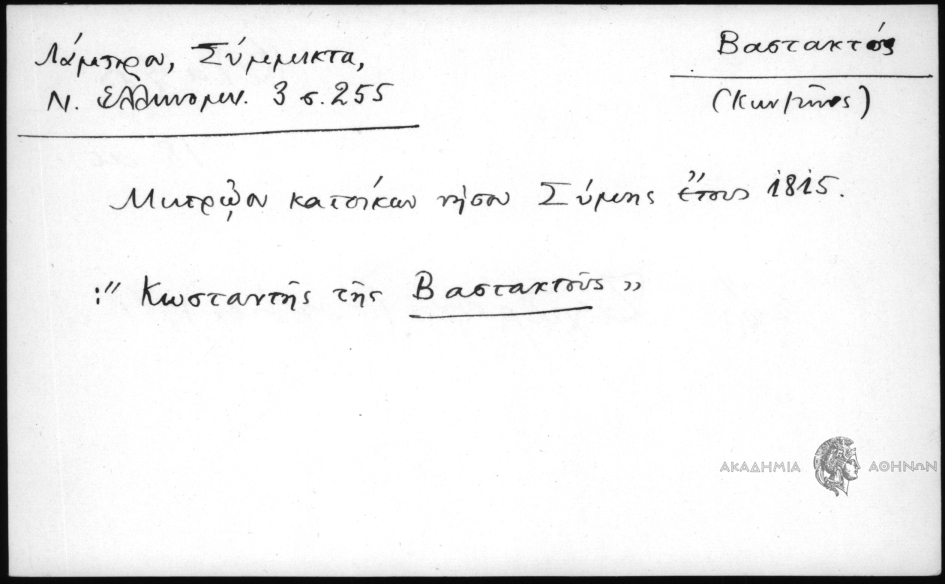 Λάμπρου, Σύμμεικτα,
Ν. Ἑλληνομν. 3 σ. 255
Βαστακτός
Μητρῷον κατοίκων νήσου Σύμης ἔτους 1815.
:" Κωσταντῆς τῆς Βαστακτοῦς "
ΑΚΑΔΗΜΙΑ ΑΘΗΝΩΝ